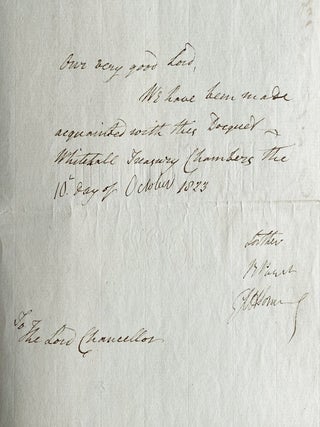 Our very good Lord,
We have been made
acquainted with this Docquet
Whitehall Treasury Chambers the
10th day of October 1823
Lowther
To
The Lord Chancellor